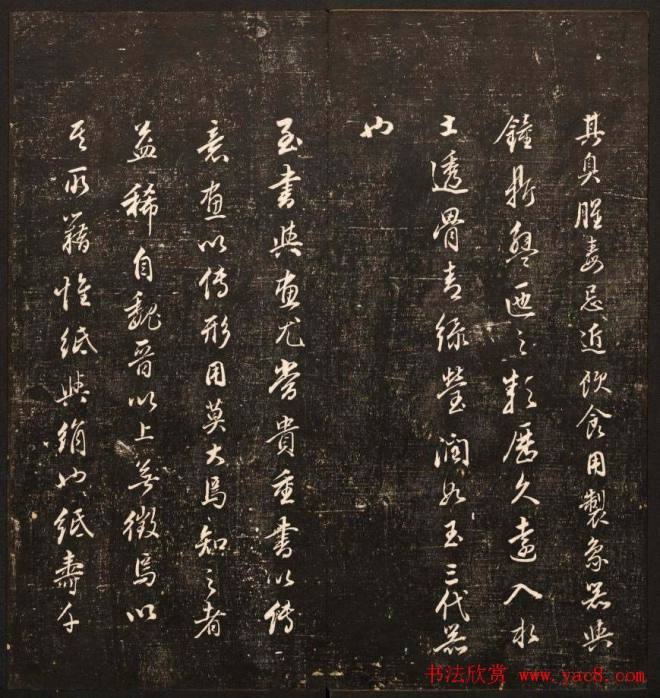 其臭腥毒忌近飲食用製象器與
鐘鼎盤匜之類歷久遠入於
土透骨青綠瑩潤如玉三代器
也
至書與畫尤當貴重書以傳
意畫以傳形用莫大焉知之者
益稀自魏晉以上無徵焉以
其所藉惟紙與絹也紙壽千
书法欣赏 www.yac8.com